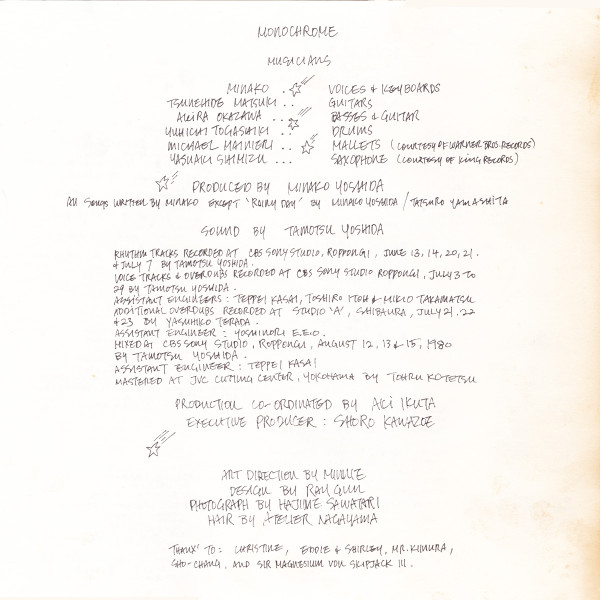 MONOCHROME
MUSICIANS
MINAKO .. VOICES & KEYBOARDS
TSUNEHIDE MATSUKI .. GUITARS
AKIRA OKAZAWA ... BASSES & GUITAR
YUHICHI TOGASHIKI .. DRUMS
MICHAEL MAINIERI .. MALLETS (COURTESY OF WARNER BROS. RECORDS)
YASUAKI SHIMIZU ... SAXOPHONE (COURTESY OF KING RECORDS)
PRODUCED BY MINAKO YOSHIDA
All SONGS WRITTEN BY MINAKO EXCEPT 'RAINY DAY' BY MINAKO YOSHIDA / TATSURO YAMASHITA
SOUND BY TAMOTSU YOSHIDA
RHYTHM TRACKS RECORDED AT CBS SONY STUDIO, ROPPONGI, JUNE 13, 14, 20, 21.
& JULY 7 BY TAMOTSU YOSHIDA.
VOICE TRACKS & OVERDUBS RECORDED AT CBS SONY STUDIO ROPPONGI, JULY 3 TO
29 BY TAMOTSU YOSHIDA.
ASSISTANT ENGINEERS : TEPPEI KASAI, TOSHIRO ITOH & MIKIO TAKAMATSU
ADDITIONAL OVERDUBS RECORDED AT STUDIO 'A', SHIBAURA, JULY 21, 22
& 23 BY YASUHIKO TERADA.
ASSISTANT ENGINEER : YOSHINORI E.E.O.
MIXED AT CBS SONY STUDIO, ROPPONGI, AUGUST 12, 13 & 15, 1980
BY TAMOTSU YOSHIDA.
ASSISTANT ENGINEER : TEPPEI KASAI
MASTERED AT JVC CUTTING CENTER, YOKOHAMA BY TOHRU KOTETSU
PRODUCTION CO-ORDINATED BY AKI IKUTA
EXECUTIVE PRODUCER : SHORO KAWAZOE
ART DIRECTION BY MINNIE
DESIGN BY RAY GUN
PHOTOGRAPH BY HAJIME SAWATARI
HAIR BY ATELIER NAGAYAMA
THANX' TO : CHRISTINE, EDDIE & SHIRLEY, MR. KIMURA,
SHO-CHANG, AND SIR MAGNESIUM VON SKIPJACK III.